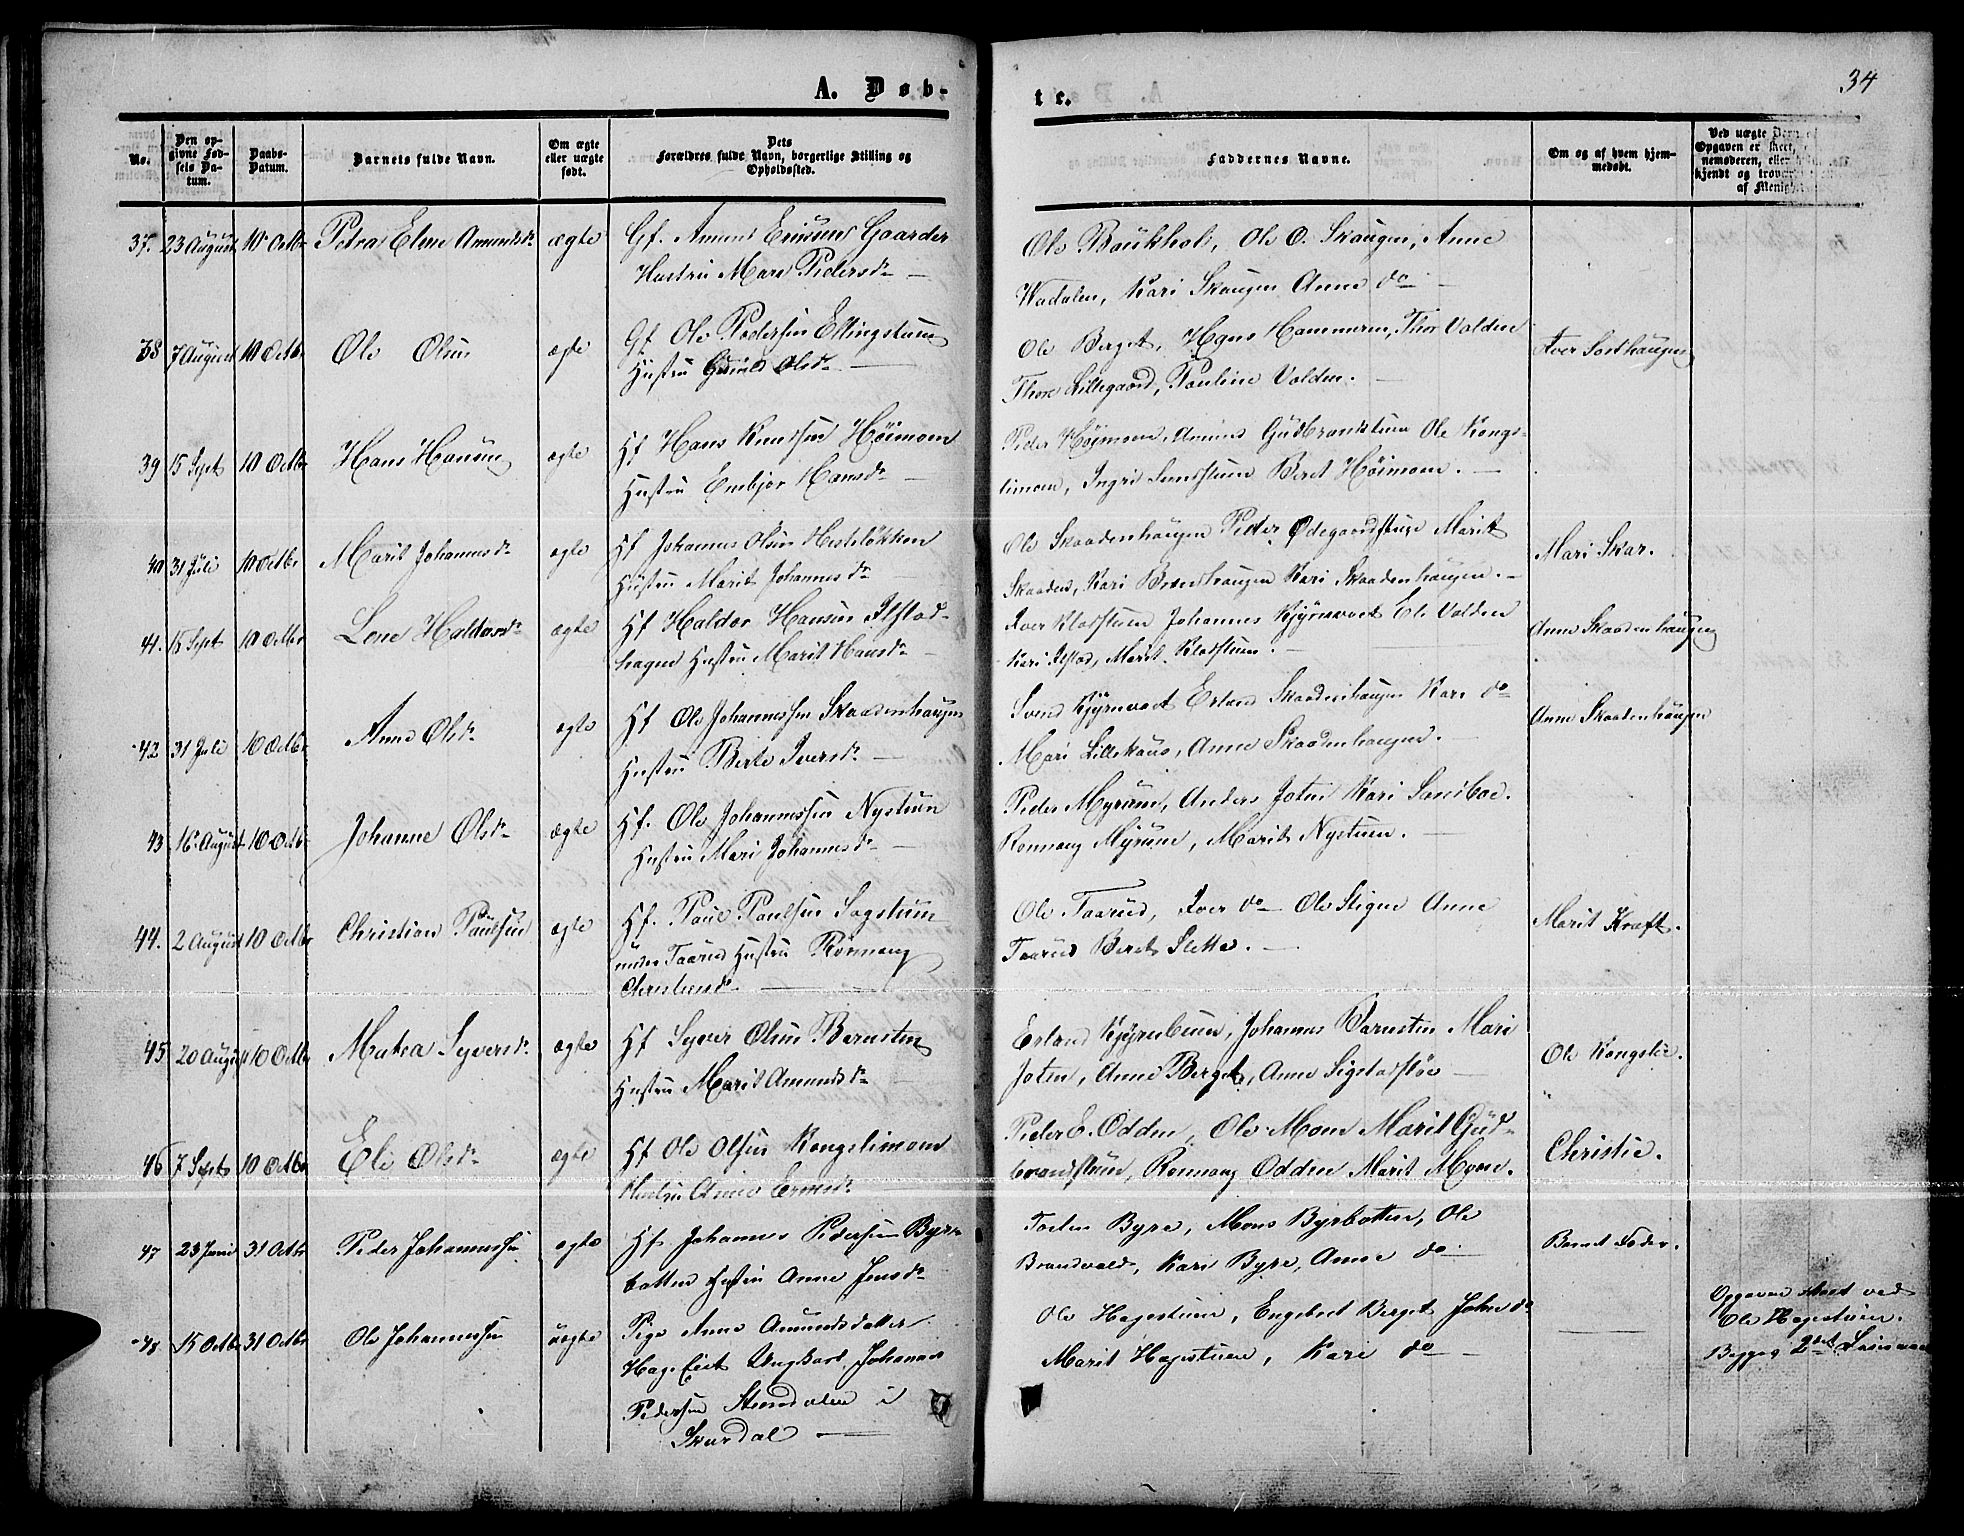 34
A. Døb-
te.
No.
Den op-
givne Fød-
sels Da-
tum.
Daabs-
Datum.
Barnets fulde Navn.
Om ægte
eller uægte
født.
Dets
Forældres fulde Navn, borgerlige Stilling og
Opholdssted.
Faddernes Navne.
Om og af hvem hjem-
medøbt.
Ved uægte
Opgaven er skeet,
nemøderen, eller
kjendt og
af Menig
37. 23 August 10 Octbr Petra Eline Amundsdr ægte Gf. Amund Gaarder
Hustru Mari Pedersdr —
Ole Baükhol, Ole O. Skaugen, Anne
Wadalen, Kari Skaugen Anne do —
38 7 August 10 Octbr Ole Olsen ægte Gf Ole Pedersen Ellingstuen
Hustru Olsdr —
Ole Berget, Hans Hammeren, Thor Valden
Thore Lillegaard, Pauline Valden. —
Iver Sorthaugen
39 15 Sept 10 Octbr Hans Hansen ægte Hf Hans Knudsen Höimoen
Hustru Embjør Hansdr —
Peder Höimoen, Amund Gudbrandstuen Ole Kongs-
limoen, Ingri Beret Höimoen. —
40 31 Juli 10 Octbr Marit Johannesdr ægte Hf Johannes Olsen Hesteløkken
Hustru Marit Johannesdr
Ole Skaadenhaugen Peder Ødegaardstuge Marit
Skaaden, Kari Brændhaugen Kari Skaadenhaugen. —
Mari Skar.
41. 15 Sept 10 Octbr Lene Haldorsdr ægte Hf Haldor Hansen Ilstad-
hagen Hustru Marit Hansdr —
Iver Klokstuen Johannes Kjørnvoet Eli Valden
Kari Ilstad, Marit Klokstuen. —
Anne Skaadenhaugen
42 31 Juli 10 Octbr Anne Olsdr ægte Hf Ole Johannessen Skaadenhaugen
Hustru Berte Iversdr —
Svend Kjørnvoet Erland Skaadenhaugen Kari do
Mari Lillekaus, Anne Skaadenhaugen. —
Anne Skaadenhaugen
43 16 August 10 Octbr Johanne Olsdr ægte Hf. Ole Johannessen Nystuen
Hustru Mari Johannesdr
Peder Myrum, Anders Joten Kari Sandboe.
Ronnaug Myrum, Marit Nystuen. —
44. 2 August 10 Octbr Christian Paulsen ægte Hf. Paul Paulsen Sagstuen
under Taarud Hustru Rønnaug
Christensdr —
Ole Taarud, Iver do — Ole Stigen Anne
Taarud Beret Slette. —
Marit Kraft.
45 20 August 10 Octbr Mathea Syversdr ægte Hf Syver Olsen Bernsten
Hustru Marit Amundsdr —
Erland Kjørnbuen, Johannes Varnsten Mari
Joten, Anne Berget, Anne Sigstadstøe —
Ole Kongslie.
46 7 Septr 10 Octbr Eli Olsdr ægte Hf Ole Olsen Kongslimoen
Hustru Anne Ernsdr —
Peder E. Odden, Ole Moen Marit Gud-
brandstuen, Ronnaug Odden Marit Moen.
Christie.
47 23 Juni 31 Octbr Peder Johannessen ægte Hf Johannes Pedersen Byre
botten Hustru Anne Jensdr
Torsten Byre, Mons Byrbotten, Ole
Brandvold, Kari Byre, Anne do —
Barnets Fader.
48 15 Octbr 31 Octbr Ole Johannessen uægte Pige Anne Amundsdatter
Hage Eiet Ungkarl Johannes
Pedersen Stensdalen i
Skurdal —
Ole Hagestuen, Engebret Berget John do
Marit Hagestuen, Kari do —
—
Opgaven skeet ved
Ole Hagestuen.
Begges 2det Leiermaal